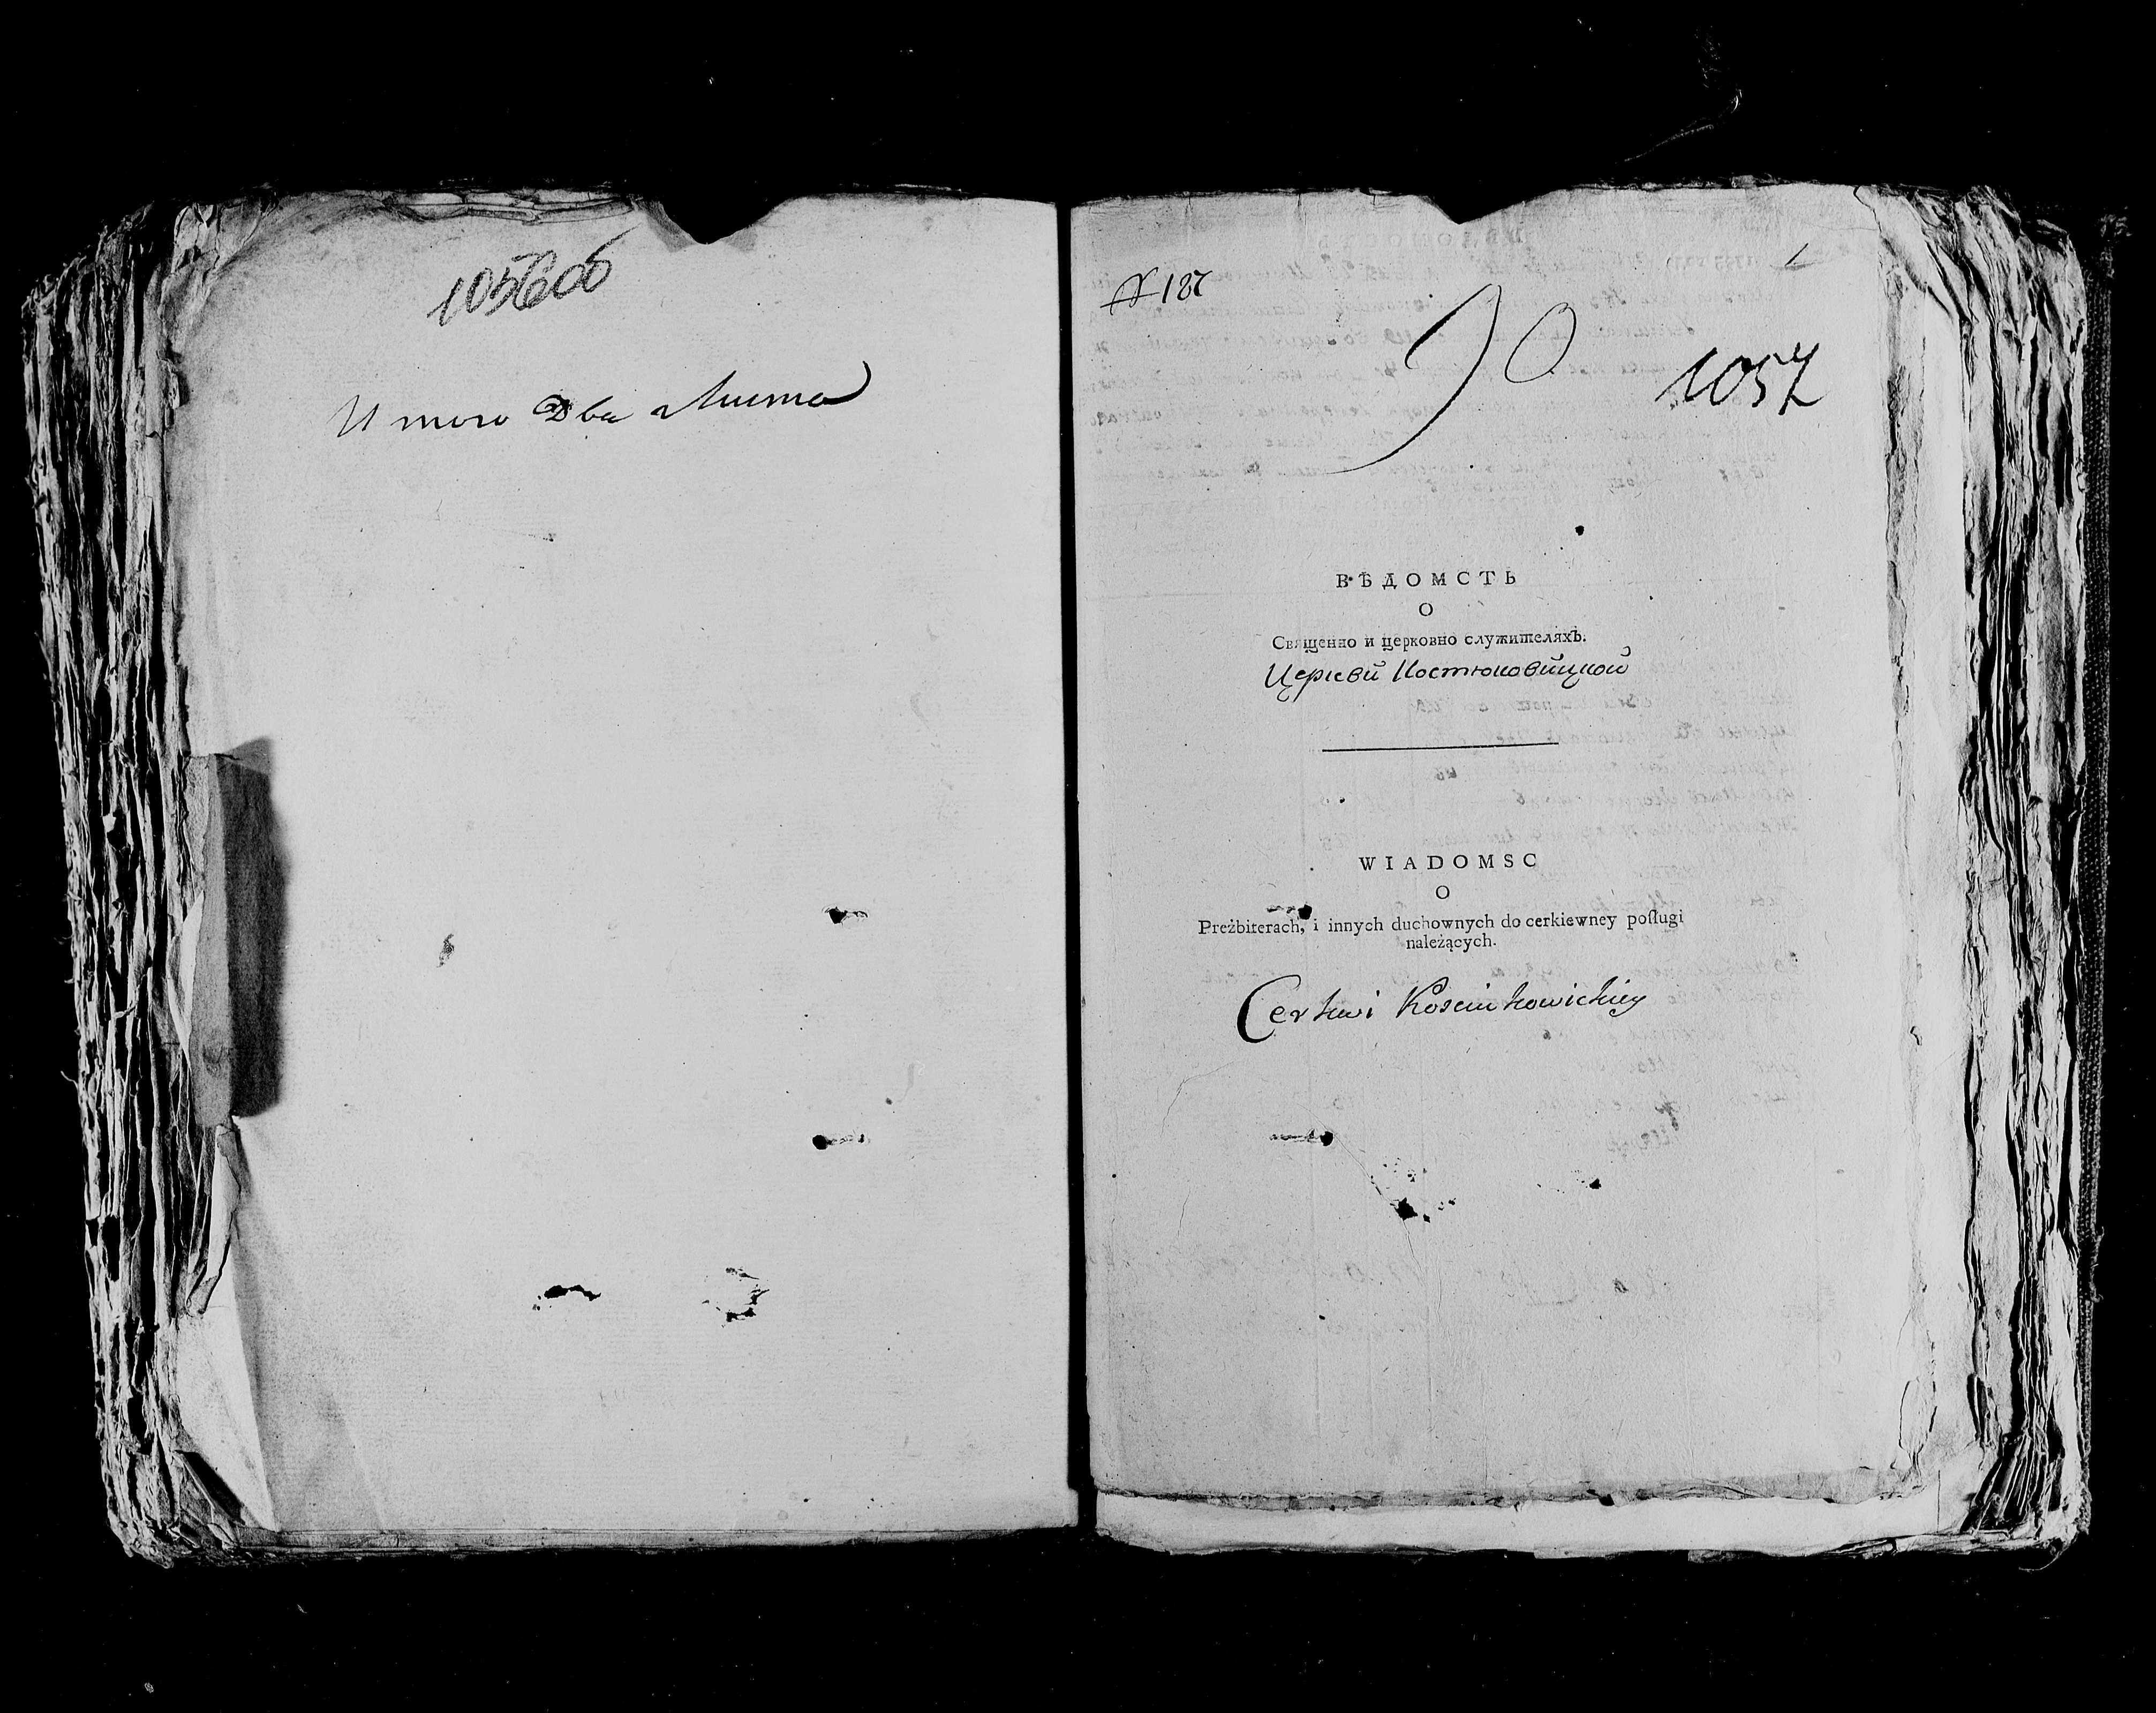 1056об
Итого два листа
№ 187
90
1057
ВѢДОМСТЬ
О
Священно и церковно служителяхъ.
Церкви Костюковицкой
WIADOMSC
O
Preżbiterach, i innych duchownych do cerkiewney poſlugi
należących.
Cerkwi Kosciukowickiey